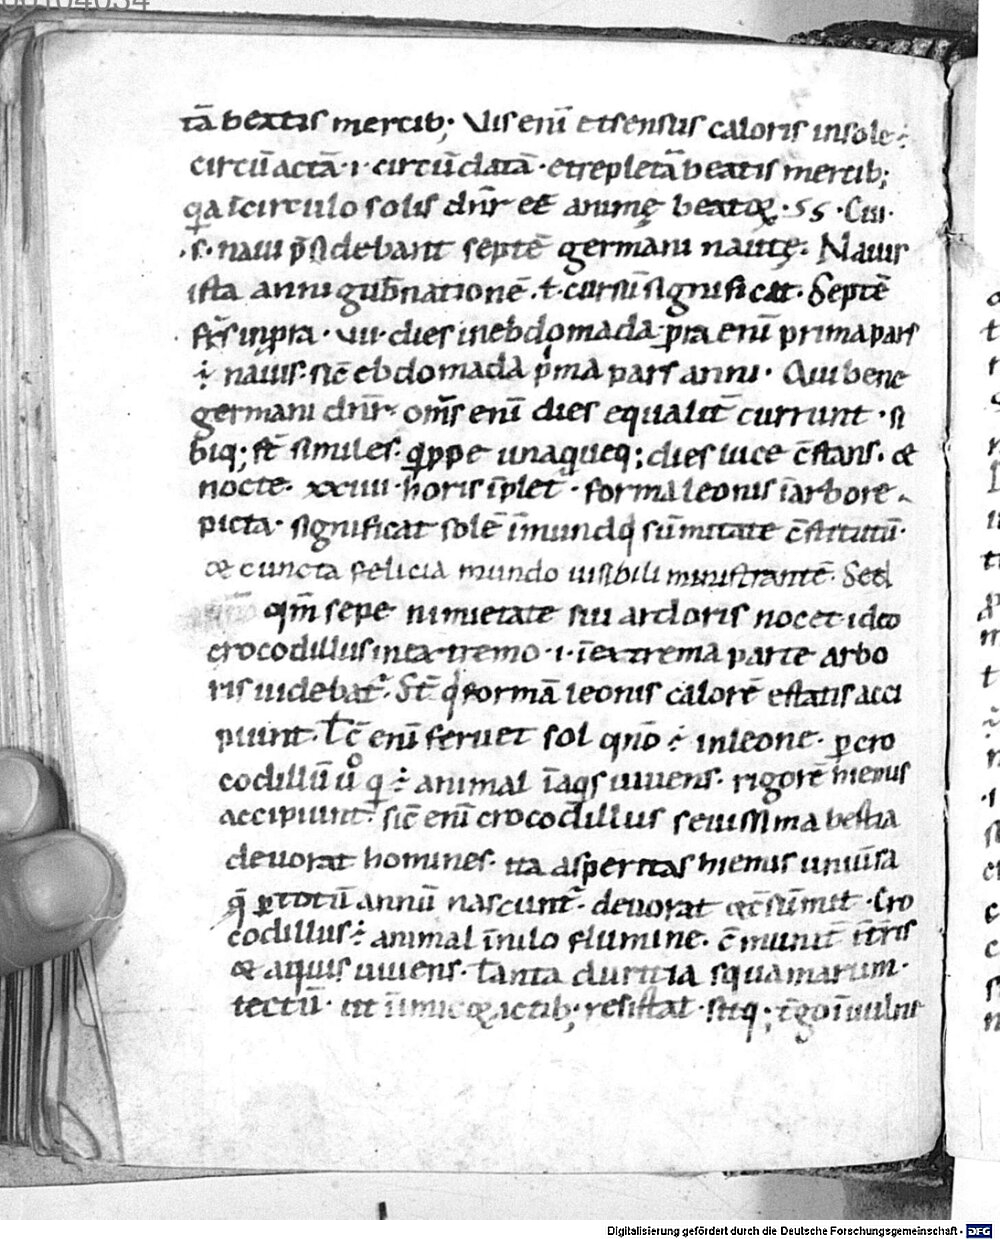 tā beatis mercib; Vis enī et sensus caloris in sole ÷
circūactā · i · circūdatā · et repletā beatis mercib;
qa ī circulo solis dn̄r eē animę beatoꝝ · ss · Cui ·
· s · naui p̄sidebant septē germani nautę · Nauis
ista anni gub̄natione · ł cursū significat · Septē
fr̄s in pra · vii · dies in ebdomada pra enī prima pars
÷ nauis · sic̄ ebdomada pͥma pars anni · Qui bene
germani dn̄r · om̄s enī dies equalit̄ currunt · si
biq; st̄ similes · q̄ppe unaqueq; dies luce c̄stans · &
nocte · xxiiii · horis īplet · forma leonis ī arbore
picta · significat solē ī mundo sūmitate c̄stitutū ·
& cuncta felicia mundo uisibili ministrante · Sed
qm̄ sepe nimietate sui ardoris nocet ideo
crocodillus in extremo · i · ī extrema parte arbo
ris uidebat᷑ · St̄ q̄ formā leonis calorē estatis acci
piunt · Tc̄ enī feruet sol qn̄o ÷ in leone · ꝑ cro
codillū ůͦ q ÷ animal ī aqs uiuens · rigorē hiemis
accipiunt · sic̄ enī crocodillus seuissima bestia
deuorat homines · ita asperitas hiemis uniūsa
q̄ ꝑ totū annū nascunt᷑ · deuorat & c̄sūmit · Cro
codillus ÷ animal ī nilo flumine · c̄munit̄ ī t̄ris
& aquis uiuens · tanta duritia squamarum ·
tectū · ut inimicoꝝ ictib; resistat